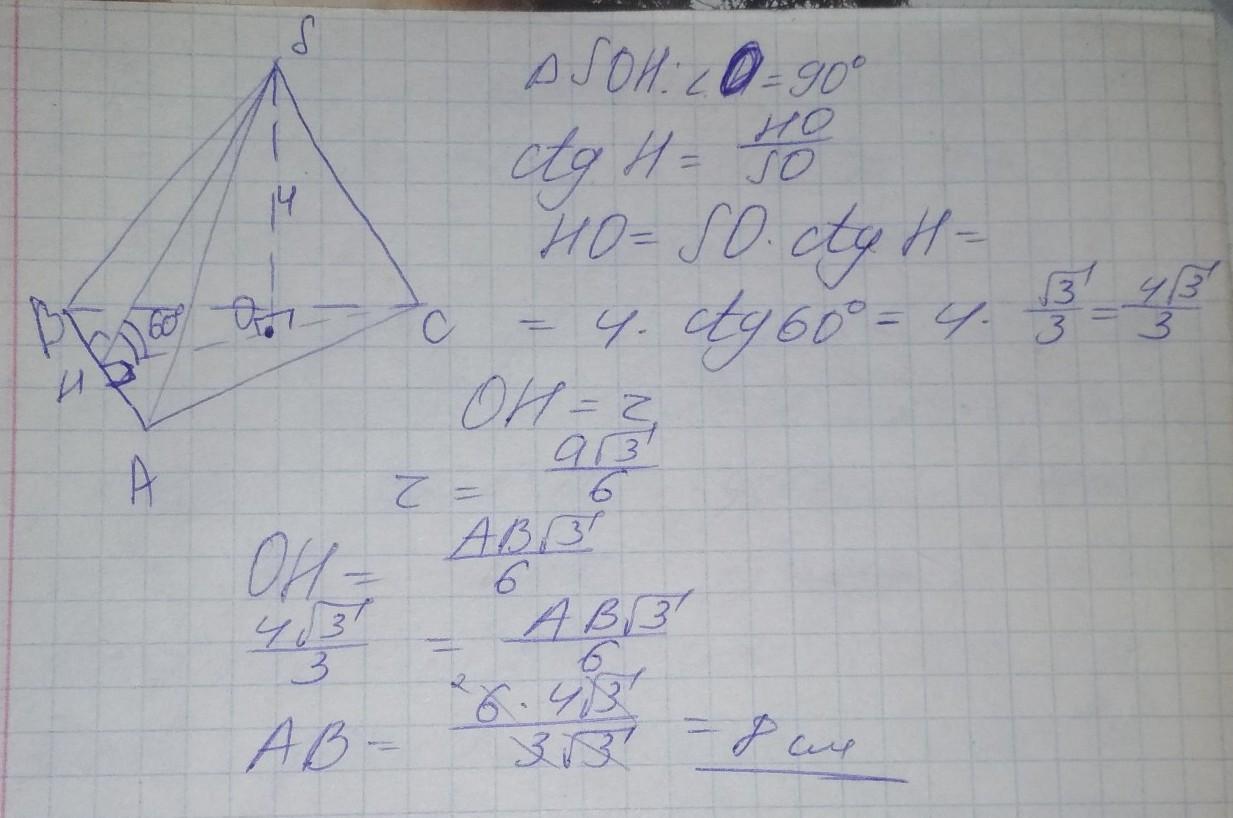 S
4
B
60°
O
C
H
A
Δ SOH: ∠O = 90°
ctg H = HO/SO
HO = SO · ctg H =
= 4 · ctg 60° = 4 · √3/3 = 4√3/3
OH = r
r = a√3/6
OH = AB√3/6
4√3/3 = AB√3/6
AB = 6 · 4√3/3√3 = 8 см
2